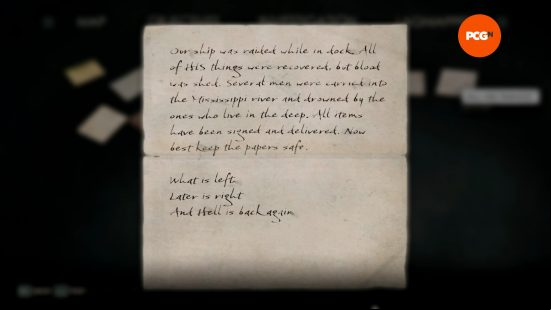 PCGN
MAP
Our ship was raided while in dock. All
of HIS things were recovered, but blood
was shed. Several men were carried into
the Mississippi river and drowned by the
ones who live in the deep. All items
have been signed and delivered. Now
best keep the papers safe.
What is left
Later is right
And Hell is back again